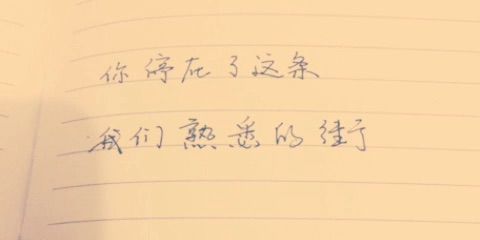 你停在了这条
我们熟悉的街